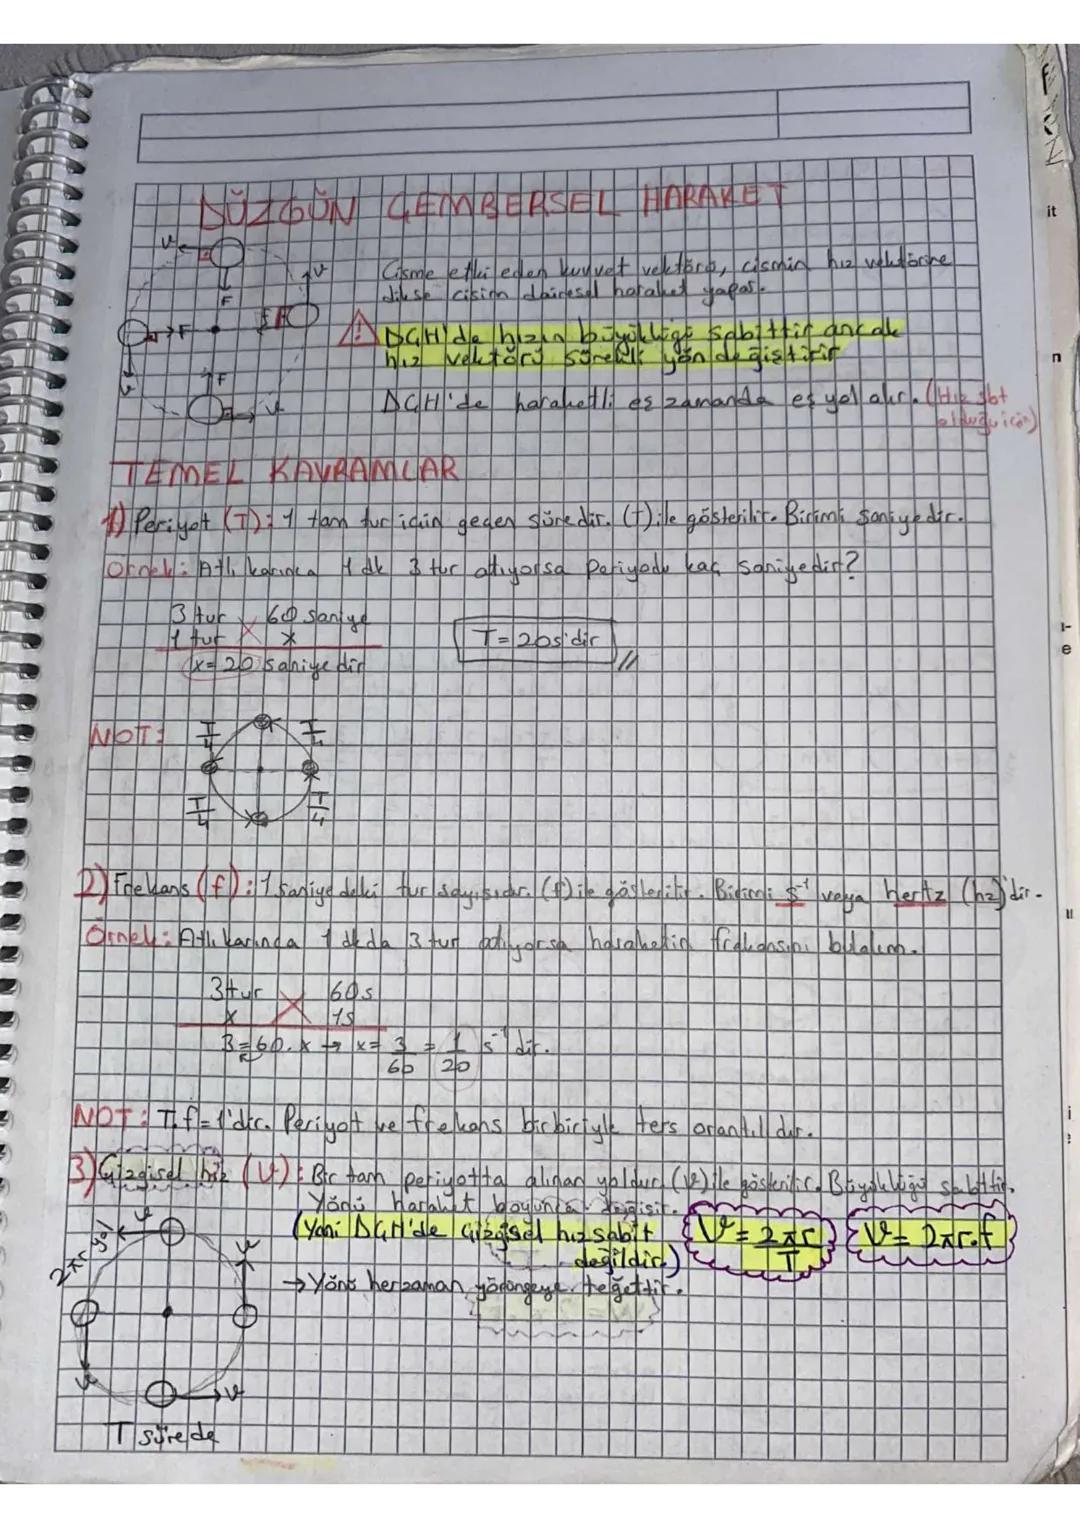 DÜZGÜN ÇEMBERSEL HARAKET
Cisme etki eden kuvvet vektörü, cismin hız vektörüne
dikse cisim dairesel haraket yapar.
DÇH'de hızın büyüklüğü sabittir ancak
hız vektörü sürekli yön değiştirir
DÇH'de haraketli eş zamanda eş yol alır. (Hız sbt
olduğu için)
V
F
V
F
F
V
F
V
TEMEL KAVRAMLAR
1) Periyot (T): 1 tam tur için geçen süredir. (T) ile gösterilir. Birimi saniyedir.
Örnek: Atlı karınca 1 dk 3 tur atıyorsa periyodu kaç saniyedir?
3 tur 60 saniye
1 tur x
x = 20 saniyedir
T = 20s'dir
NOT:
T/4 T/4
T/4 T/4
2) Frekans (f): 1 saniyedeki tur sayısıdır. (f) ile gösterilir. Birimi s⁻¹ veya hertz (hz)'dir.
Örnek: Atlı karınca 1 dk da 3 tur atıyorsa haraketin frekansını bulalım.
3 tur 60s
x 1s
3 = 60.x → x = 3/60 = 1/20 s⁻¹ dir.
NOT: T.f = 1'dir. Periyot ve frekans birbiriyle ters orantılıdır.
3) Çizgisel hız (V): Bir tam periyotta alınan yoldur. (V) ile gösterilir. Büyüklüğü sabittir.
Yönü haraket boyunca değişir.
(Yani DÇH'de çizgisel hız sabit
değildir.)
V = 2πr/T
V = 2πr.f
→ Yönü herzaman yörüngeye teğettir.
2πr yol
V
V
V
V
T sürede